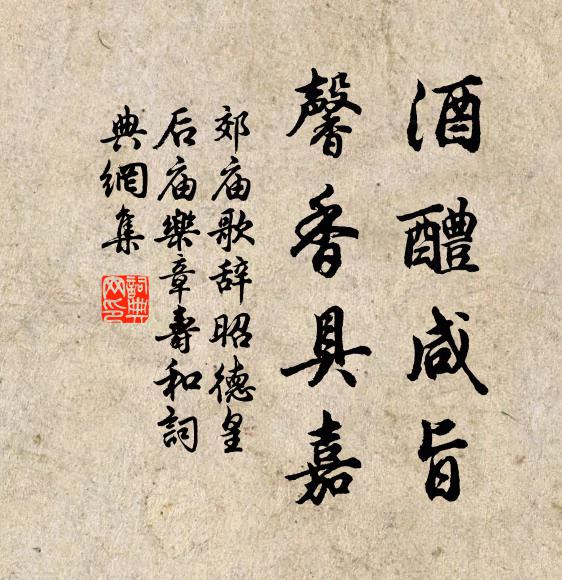 酒醴咸旨
馨香具嘉
郊庙歌辞昭德皇
后庙樂章壽和詞
典網集
詞典網印